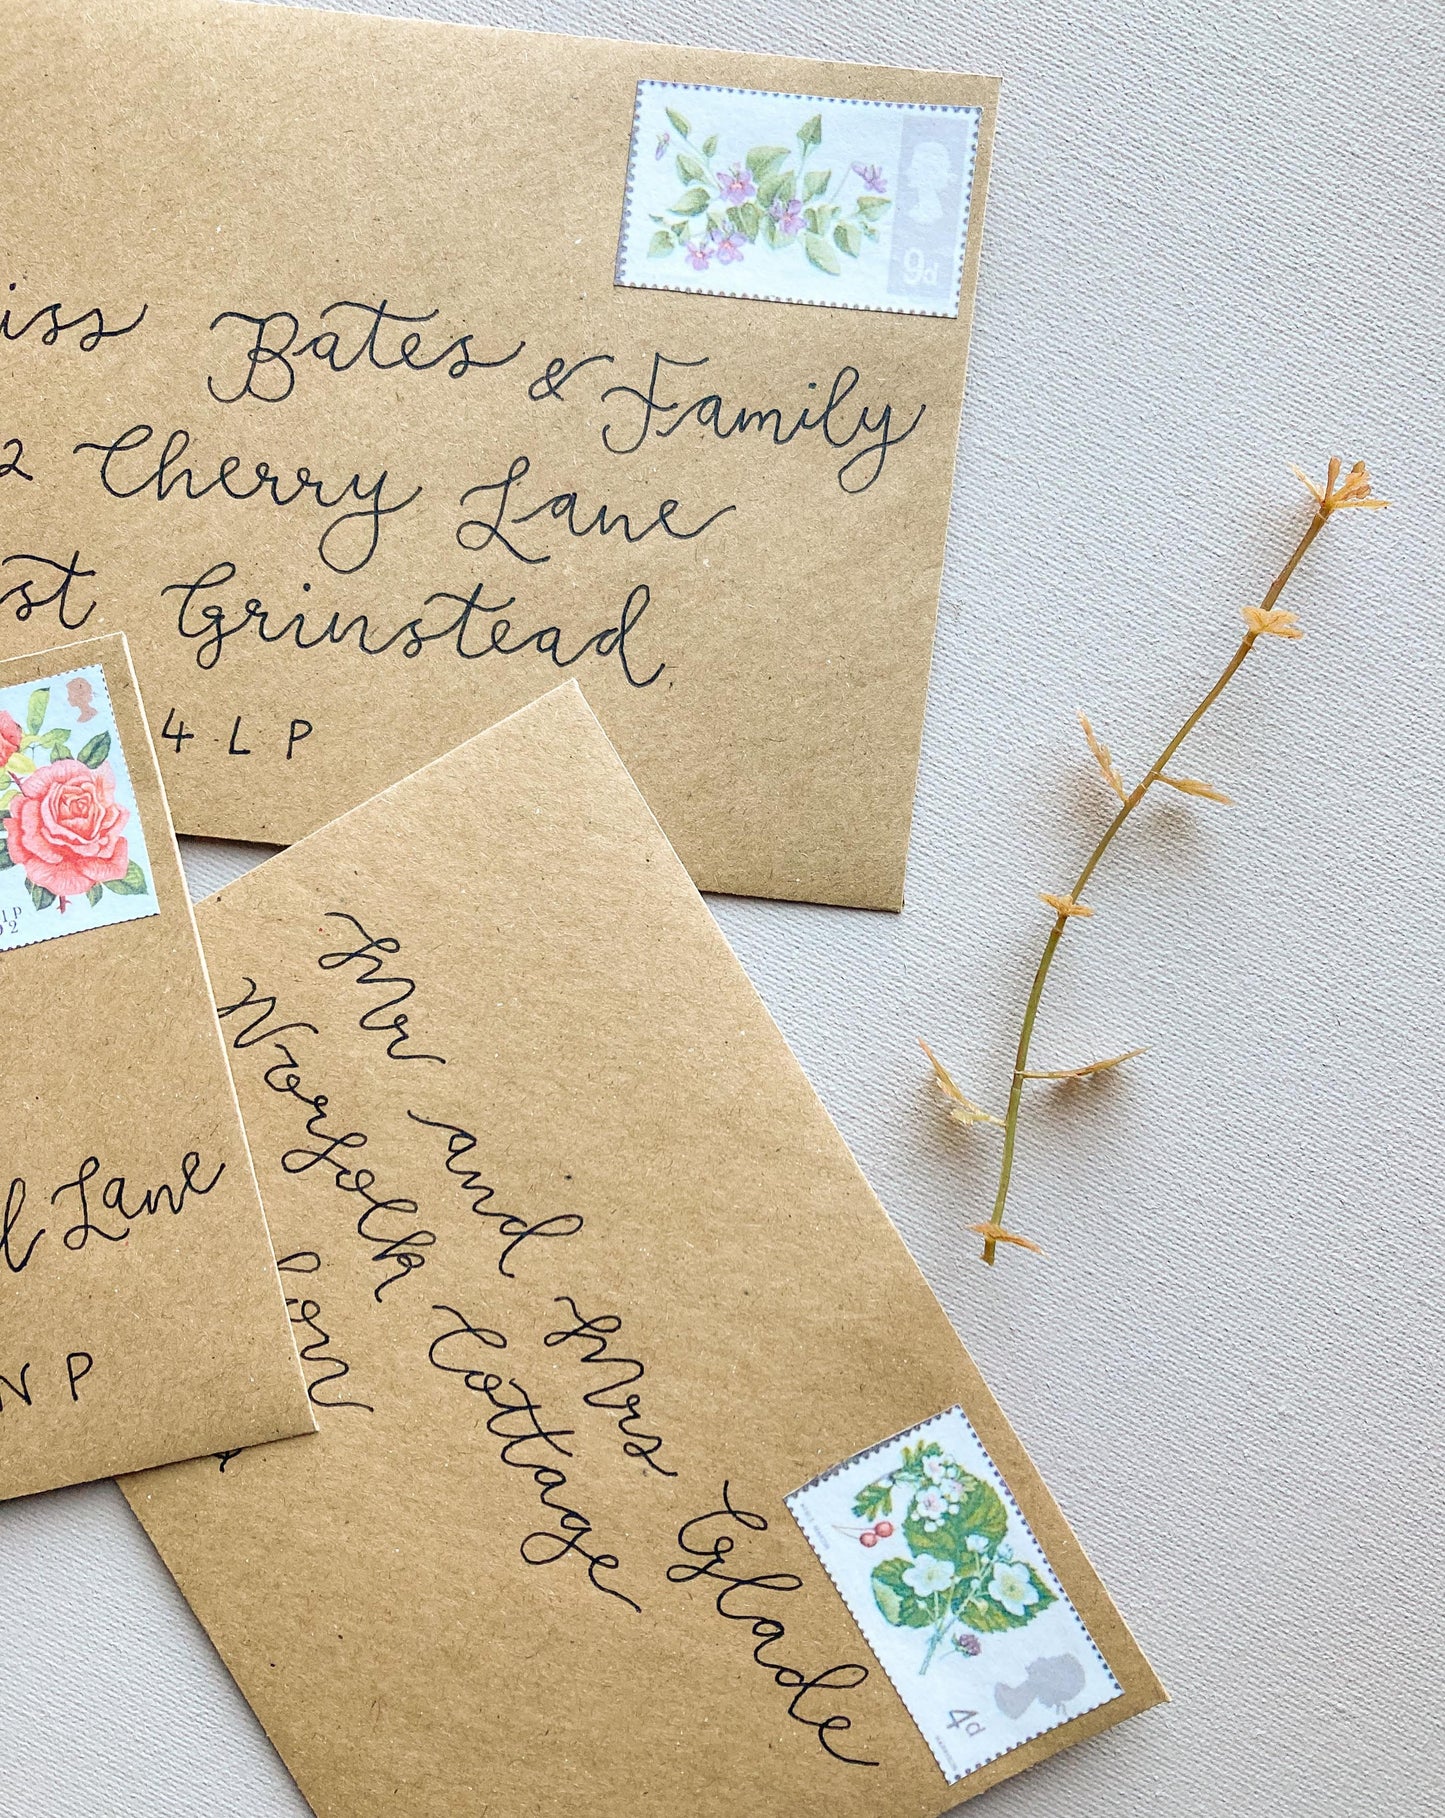 iss Bates & Family
2 Cherry Lane
st Grinstead
4 L P
9d
Lane
N P
Mr and Mrs Glade
Norfolk Cottage
4d